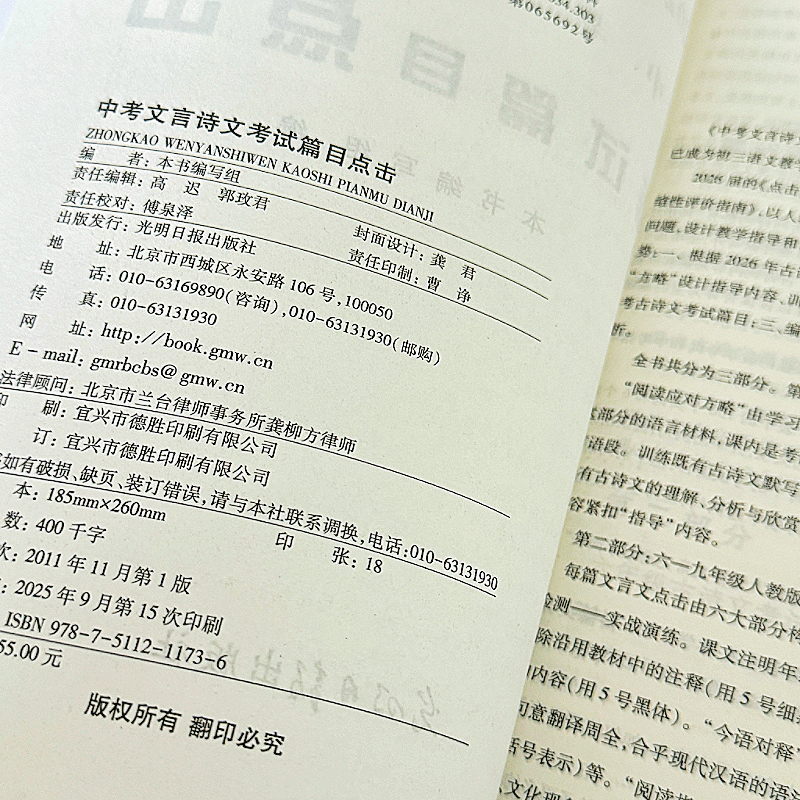 第065692号
中考文言诗文考试篇目点击
ZHONGKAO WENYANSHIWEN KAOSHI PIANMU DIANJI
编 者：本书编写组
责任编辑：高 迟 郭玫君
封面设计：龚 君
责任校对：傅泉泽
责任印制：曹 诤
出版发行：光明日报出版社
地 址：北京市西城区永安路106号，100050
电 话：010-63169890(咨询),010-63131930(邮购)
传 真：010-63131930
网 址：http://book.gmw.cn
E-mail：gmrbcbs@gmw.cn
法律顾问：北京市兰台律师事务所龚柳方律师
印 刷：宜兴市德胜印刷有限公司
订：宜兴市德胜印刷有限公司
如有破损、缺页、装订错误，请与本社联系调换，电话：010-63131930
本：185mm×260mm
数：400千字
印 张：18
次：2011年11月第1版
2025年9月第15次印刷
ISBN 978-7-5112-1173-6
55.00元
版权所有 翻印必究
《中考文言诗文
已成为初三语文教学
2026届的《点击
性评价指南》，以人
问题，设计教学指导和
一、根据2026年古
“方略”设计指导内容、训
考古诗文考试篇目；三、编
析。
全书共分为三部分。第
“阅读应对方略”由学习
部分的语言材料，课内是考
语段。训练既有古诗文默写
有古诗文的理解、分析与欣赏
容紧扣“指导”内容。
第二部分：六—九年级人教版
每篇文言文点击由六大部分构
检测——实战演练。课文注明年
除沿用教材中的注释（用5号细
内容（用5号黑体）。“今语对释
句意翻译周全，合乎现代汉语的语
括号表示）等。“阅读